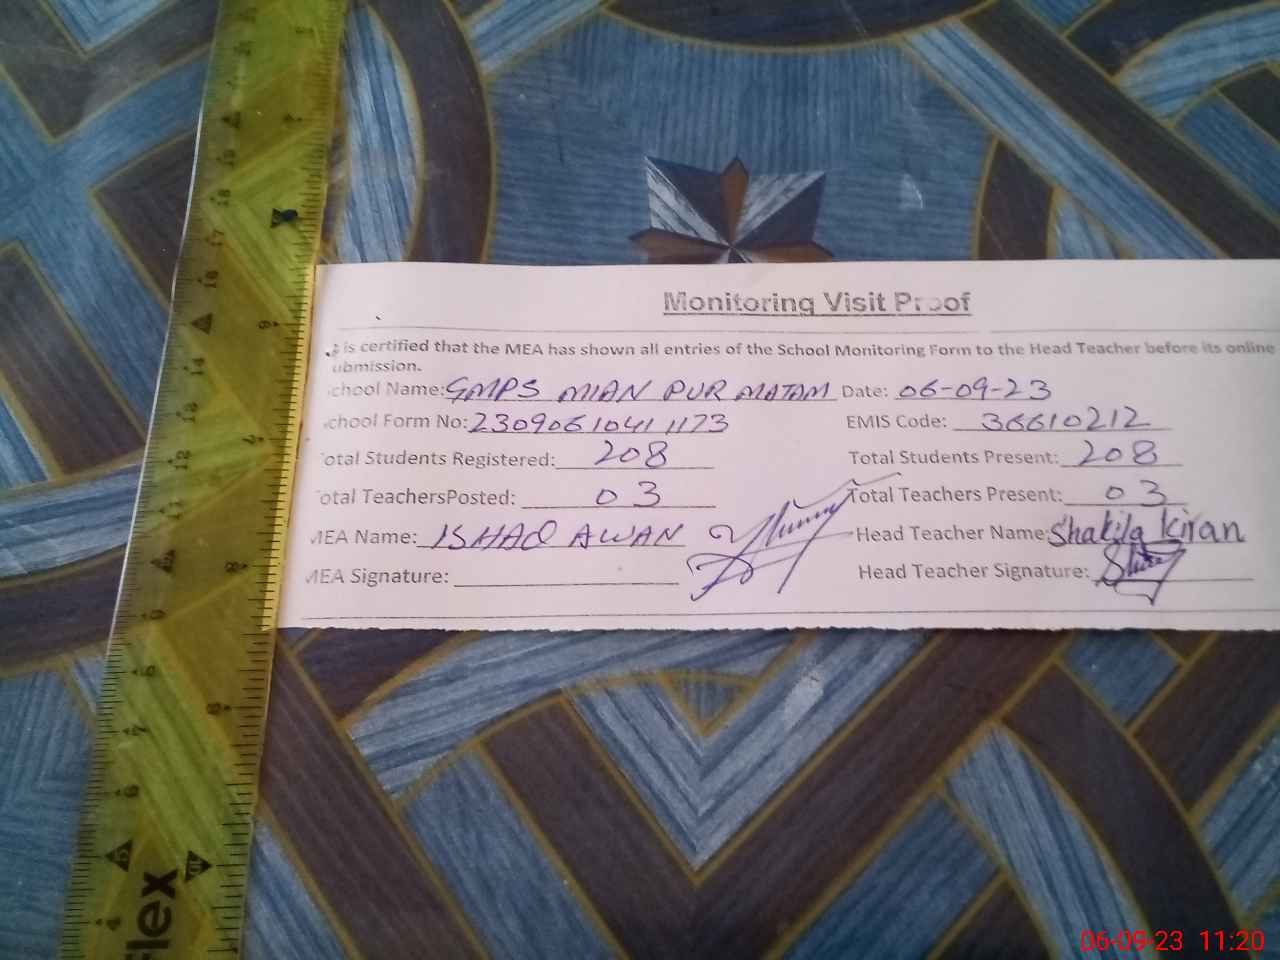 Monitoring Visit Proof
is certified that the MEA has shown all entries of the School Monitoring Form to the Head Teacher before its online
ubmission.
chool Name: GMPS MIAN PUR MATAM Date: 06-09-23
chool Form No: 23090610411173 EMIS Code: 36610212
otal Students Registered: 208 Total Students Present: 208
otal TeachersPosted: 03 Total Teachers Present: 03
MEA Name: ISHAQ AWAN Head Teacher Name: Shakila Kiran
MEA Signature: Head Teacher Signature:
Flex
06-09-23 11:20